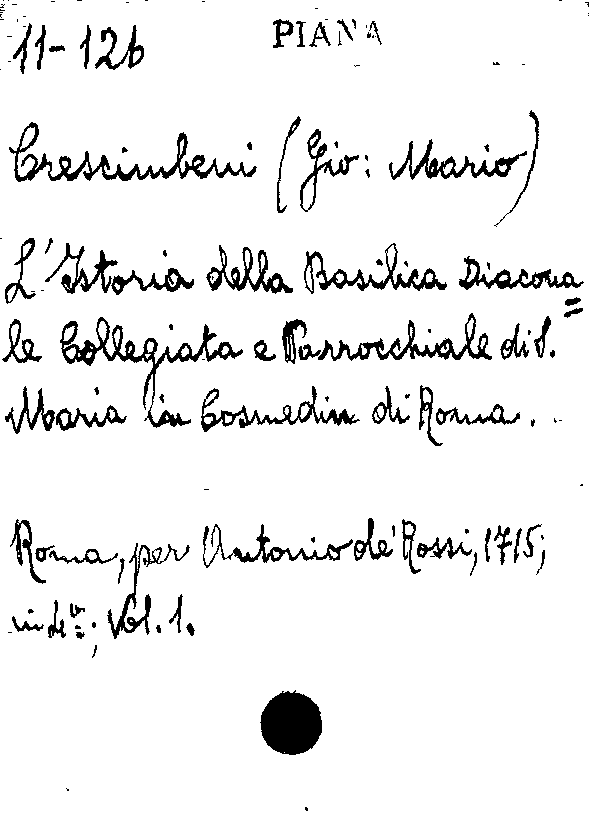 PIANA
11-126
Crescimbeni (Gio: Mario)
L'Istoria della Basilica Diacona=
le Collegiata e Parrocchiale di S.
Maria in Cosmedin di Roma.
Roma, per Antonio de' Rossi, 1715;
in 4º; Vol. 1.